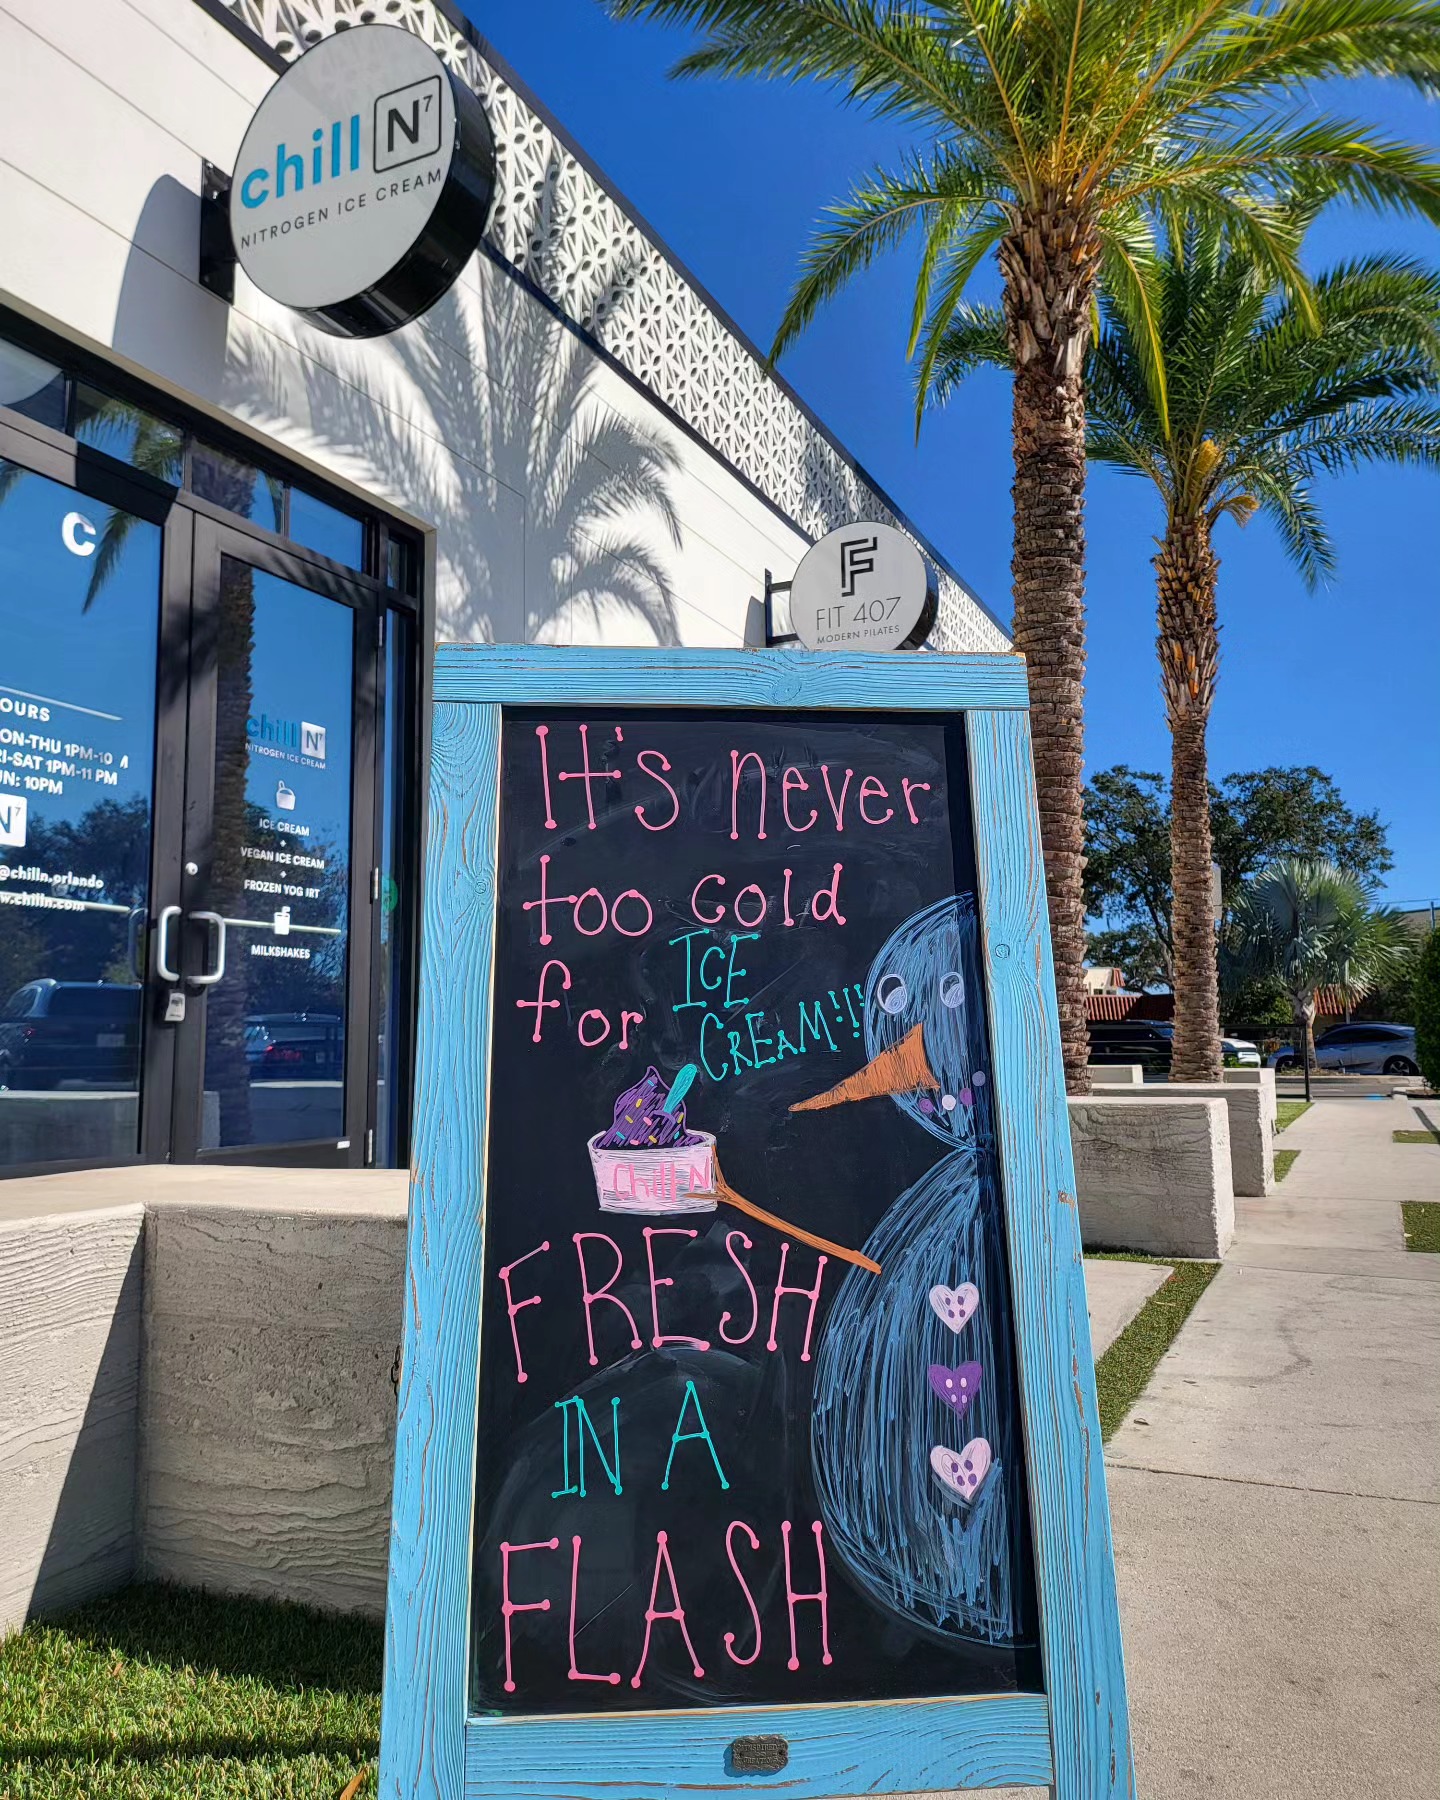 chill N7
NITROGEN ICE CREAM
F
FIT 407
MODERN PILATES
C
OURS
ON-THU 1PM-10
RI-SAT 1PM-11 PM
UN: 10PM
N7
@chilln.orlando
w.chilln.com
chill N7
NITROGEN ICE CREAM
ICE CREAM
+
VEGAN ICE CREAM
+
FROZEN YOG RT
MILKSHAKES
It's never
too cold
for ICE
CREAM!!!
Chill-N
FRESH
IN A
FLASH